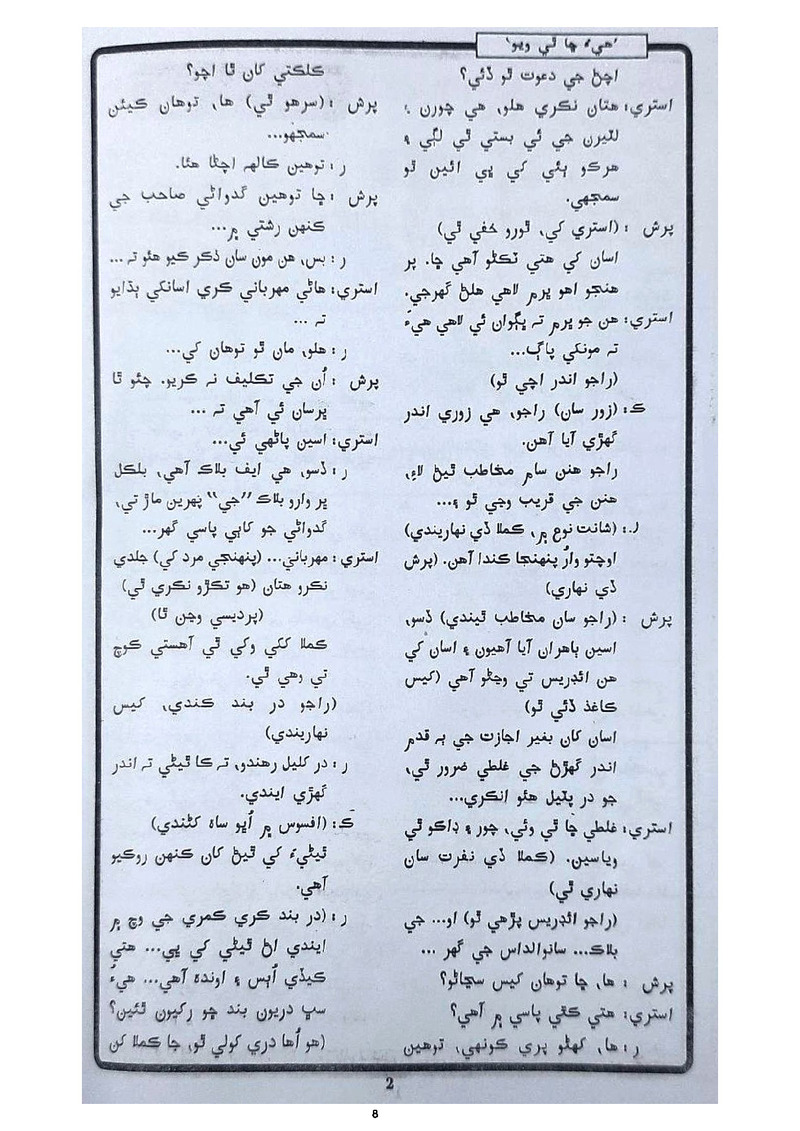 'هيءُ ڇا ٿي ويو'
اچڻ جي دعوت ٿو ڏئي؟
استري: هتان نڪري هلو، هي چورن ۽
لٽيرن جي ئي بستي ٿي لڳي ۽
هرڪو ٻئي کي پي ائين ٿو
سمجهي.
پرش : (استري کي، ٿورو خفي ٿي)
اسان کي هتي ٽڪڻو آهي ڇا. پر
هنجو اهو ڀرم لاهي هلڻ گهرجي.
استري: هن جو ڀرم ته ڀڳوان ئي لاهي هيءَ
ته مونکي پاڳ...
(راجو اندر اچي ٿو)
ڪ: (زور سان) راجو، هي زوري اندر
گهڙي آيا آهن.
راجو هنن سام مخاطب ٿيڻ لاءِ،
هنن جي قريب وڃي ٿو ۽...
ر: (شانت نوع ۾، ڪملا ڏي نهاريندي)
اوچتو وارُ پنهنجا ڪندا آهن. (پرش
ڏي نهاري)
پرش : (راجو سان مخاطب ٿيندي) ڏسو،
اسين ٻاهران آيا آهيون ۽ اسان کي
هن ائڊريس تي وڃڻو آهي (ڪيس
ڪاغذ ڏئي ٿو)
اسان کان بغير اجازت جي ٻه قدم
اندر گهڙڻ جي غلطي ضرور ٿي،
جو در پٽيل هئو انڪري...
استري: غلطي ڇا ٿي وئي، چور ۽ ڊاڪو ٿي
وياسين. (ڪملا ڏي نفرت سان
نهاري ٿي)
(راجو ائڊريس پڙهي ٿو) او... جي
بلاڪ... سانوالداس جي گهر ...
پرش : ها، ڇا توهان کيس سڃاڻو؟
استري: هتي ڪٿي پاسي ۾ آهي؟
ر : ها، گهڻو پري ڪونهي، توهين
ڪلڪتي کان ٿا اچو؟
پرش : (سرهو ٿي) ها، توهان ڪيئن
سمجهو...
ر : توهين ڪالهه اچڻا هئا.
پرش : ڇا توهين گدواڻي صاحب جي
ڪنهن رشتي ۾...
ر : بس، هن مون سان ذڪر ڪيو هئو ته ...
استري: هاڻي مهرباني ڪري اسانکي ٻڌايو
ته ...
ر : هلو، مان ٿو توهان کي...
پرش : اُن جي تڪليف نه ڪريو. چئو ٿا
ڀرسان ئي آهي ته ...
استري: اسين پاڻهي ئي...
ر : ڏسو، هي ايف بلاڪ آهي، بلڪل
ڀر وارو بلاڪ "جي" پهرين ماڙ تي،
گدواڻي جو کاٻي پاسي گهر...
استري: مهرباني... (پنهنجي مرد کي) جلدي
نڪرو هتان (هو تڪڙو نڪري ٿي)
(پرديسي وڃن ٿا)
ڪملا ککي وکي ٿي آهستي ڪوچ
تي وهي ٿي.
(راجو در بند ڪندي، کيس
نهاريندي)
ر : در کليل رهندو، ته ڪا ٿيڻي ته اندر
گهڙي ايندي.
ڪ: (افسوس ۾ اُڀو ساھ کڻندي)
ٿيڻيءَ کي ٿيڻ کان ڪنهن روڪيو
آهي.
ر : (در بند ڪري ڪمري جي وچ ۾
ايندي اڻ ٿيڻي کي پي... هتي
ڪيڏي اُٻس ۽ اونده آهي... هيءُ
سڀ دريون بند ڇو رکيون ٿئين؟
(هو اُها دري کولي ٿو، جا ڪملا کن
2
8